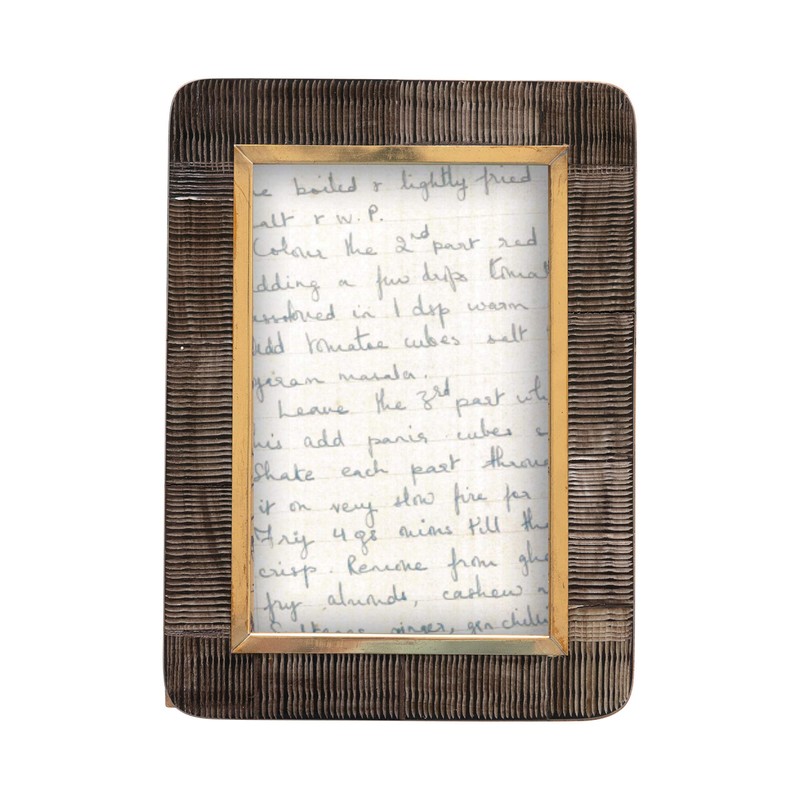 e boiled & lightly fried
alt & W.P.
Colour the 2nd part red
dding a few drops tomat
issolved in 1 dsp warm
add tomatoe cubes salt
garam masala.
Leave the 3rd part whi
his add panir cubes s
Shake each part throug
it on very slow fire for
Fry 4 gs onions till the
crisp. Remove from ghe
fry almonds, cashew n
Sultanas ginger, gen chilli